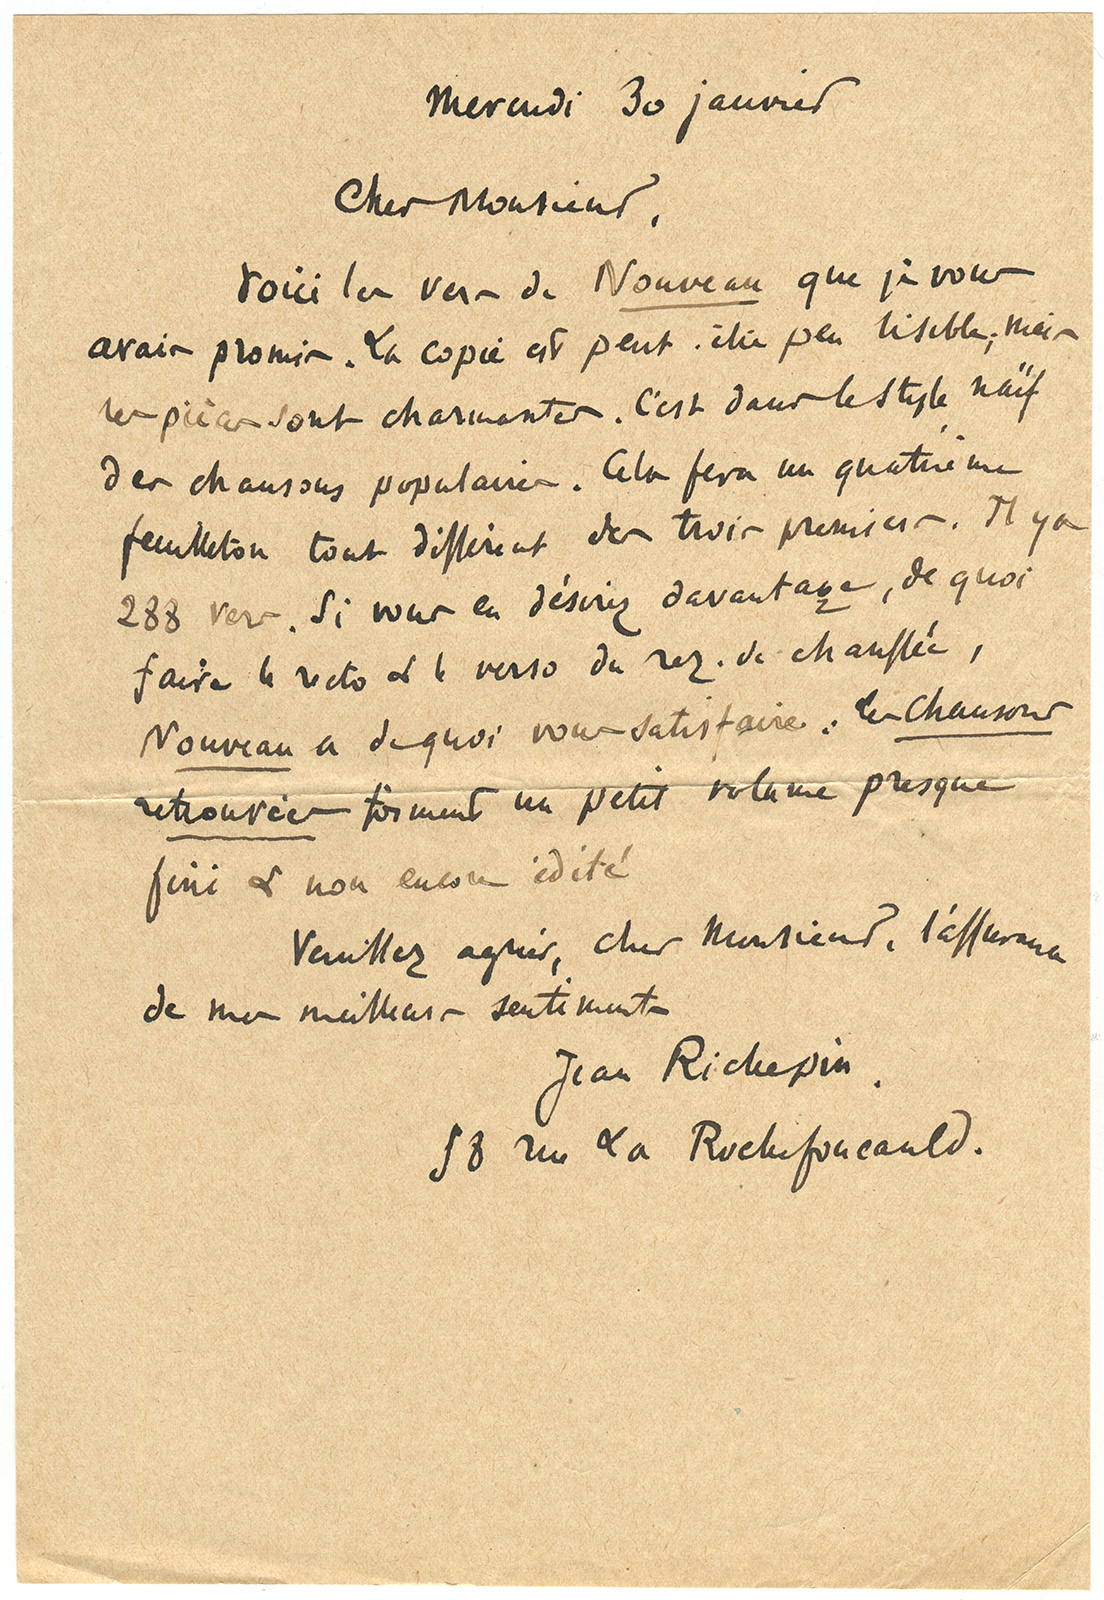 Mercredi 30 janvier
Cher Monsieur,
Voici les vers de Nouveau que je vous
avais promis. La copie est peut-être peu lisible; mais
les pièces sont charmantes. C'est dans le style naïf
des chansons populaires. Cela fera un quatrième
feuilleton tout différent des trois premiers. Il y a
288 vers. Si vous en désirez davantage, de quoi
faire le recto & le verso du rez-de chaussée,
Nouveau a de quoi vous satisfaire : les Chansons
retrouvées forment un petit volume presque
fini & non encore édité
Veuillez agréer, cher Monsieur, l'assurance
de mes meilleurs sentiments
Jean Richepin.
58 rue La Rochefoucauld.